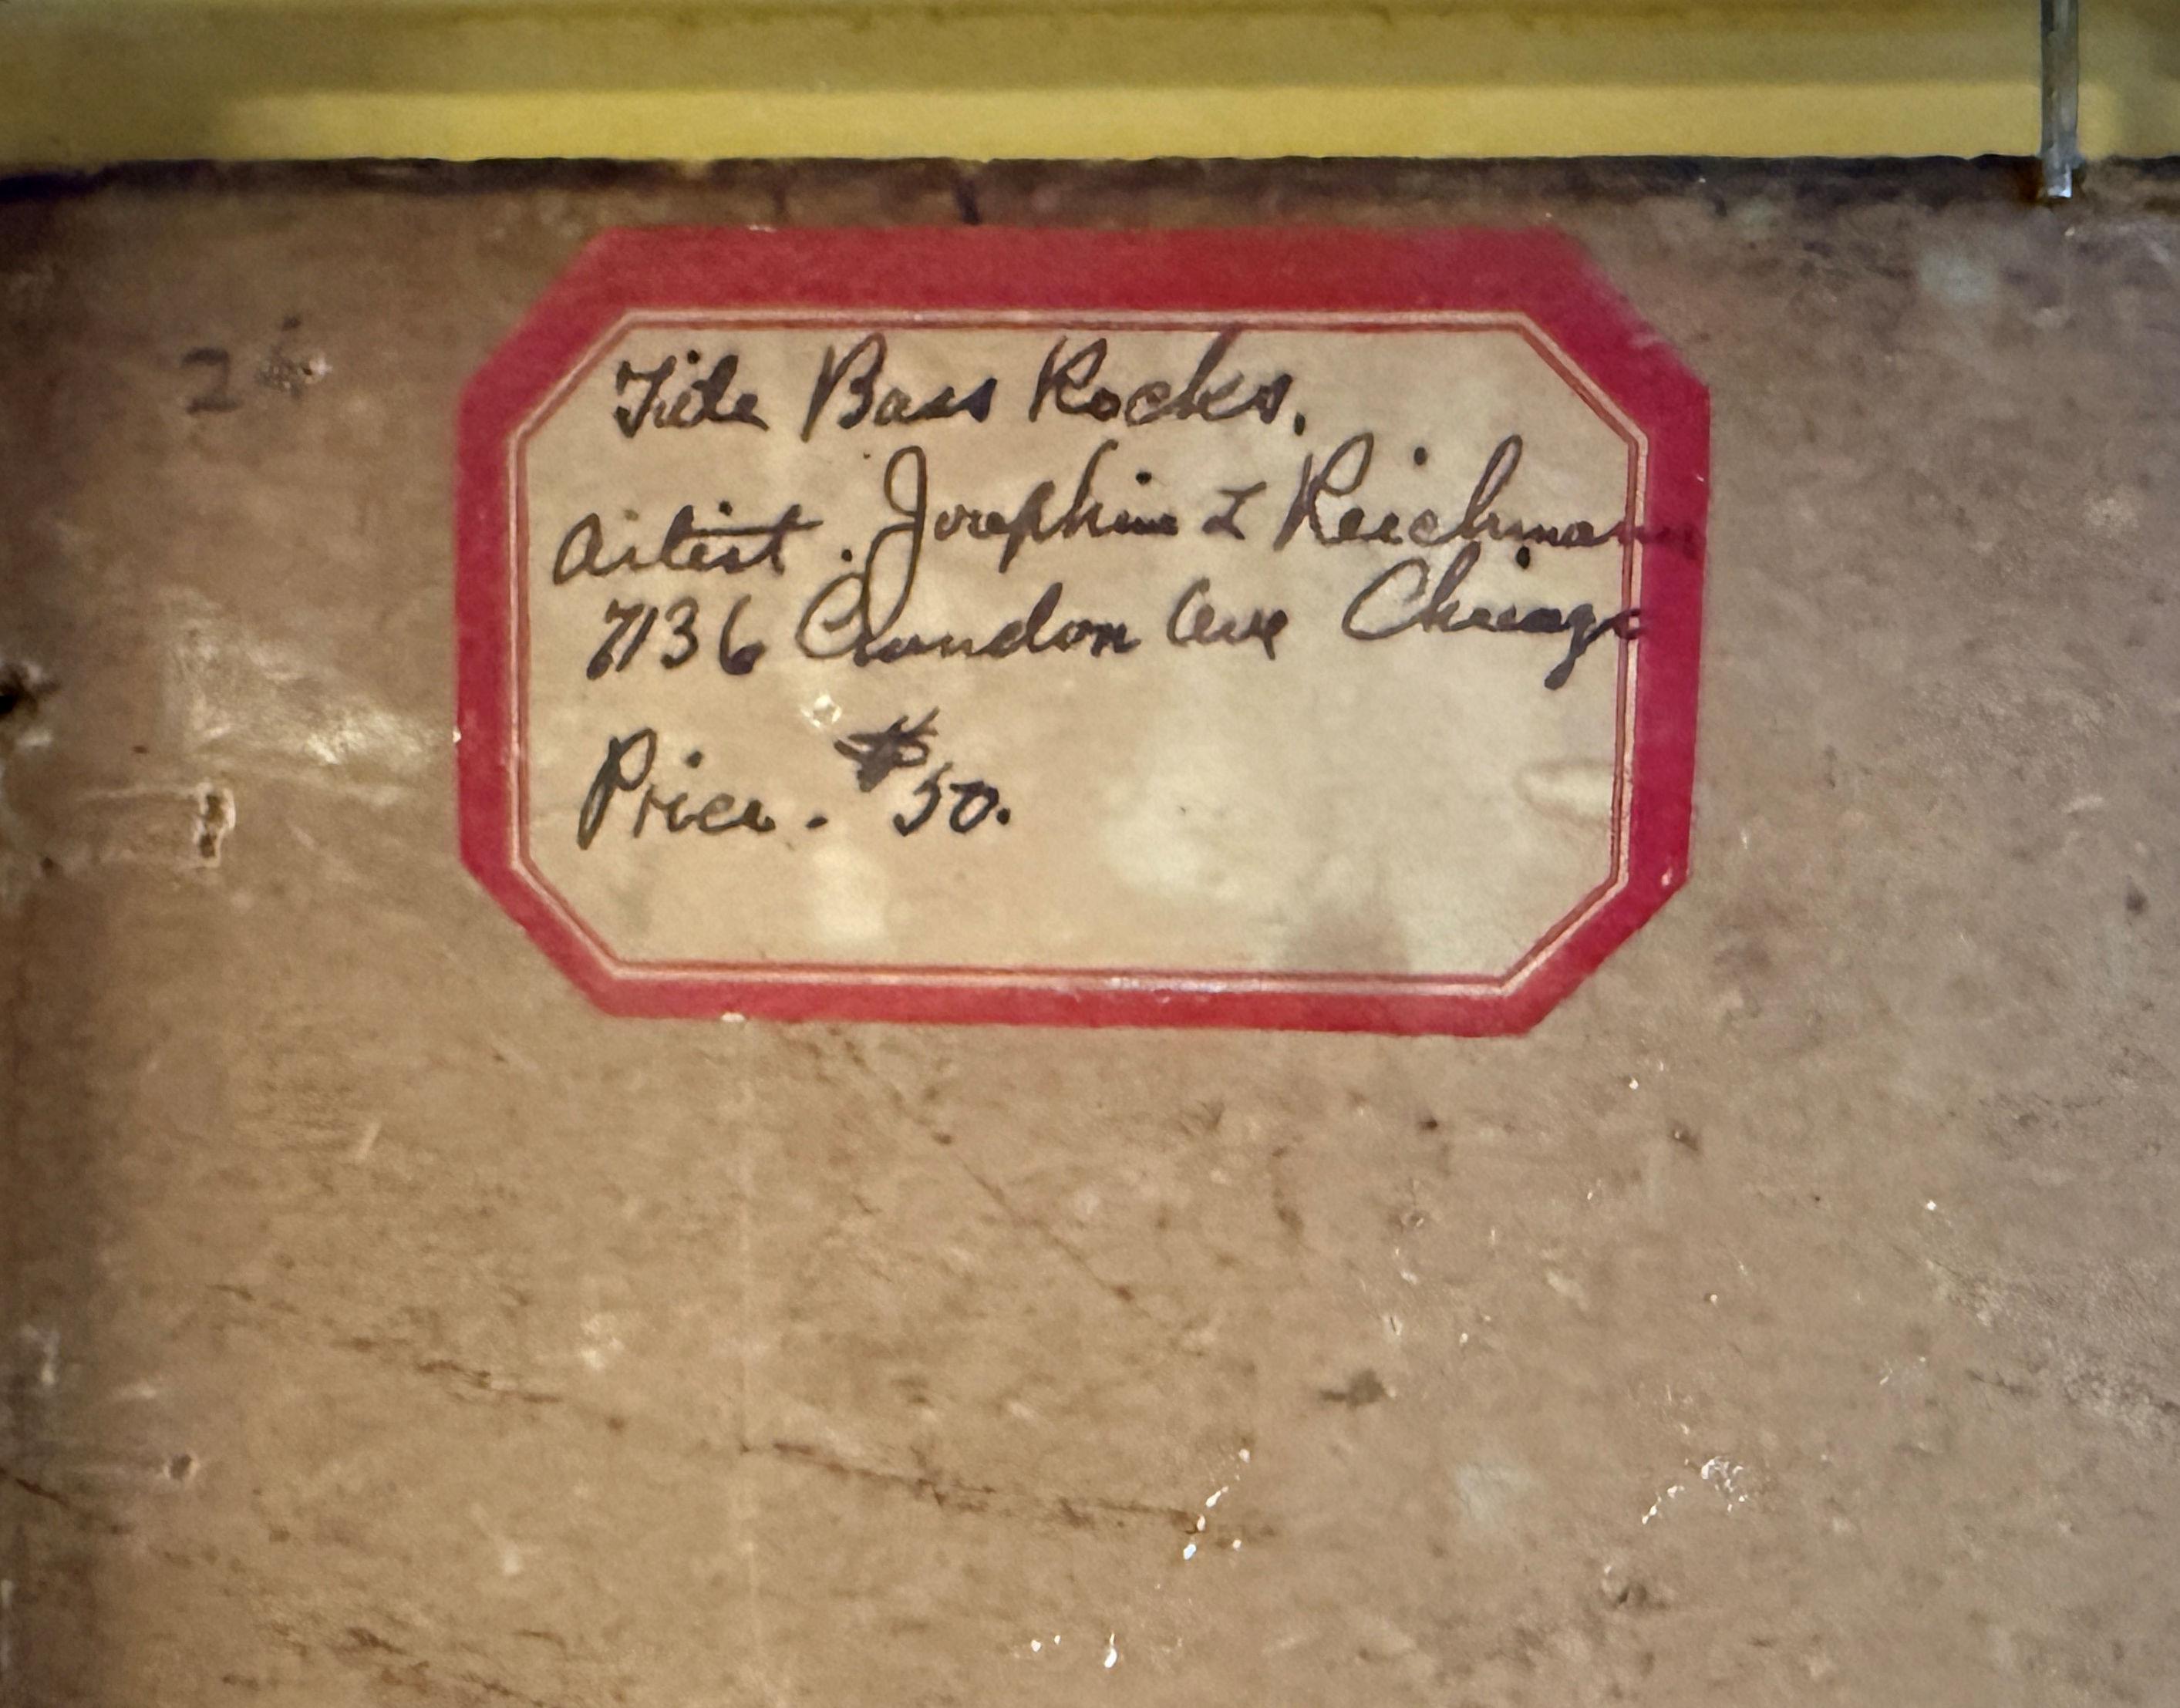 Title Bass Rocks.
Artist. Josephine L Reichmann
7136 Crandon Ave Chicago
Price. $50.